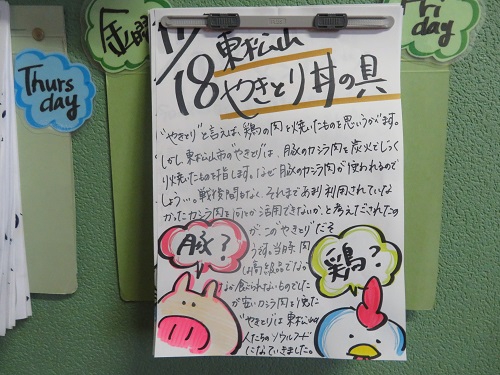 Thurs
day
金曜
Fri
day
17/18 東松山
やきとり丼の具
"やきとり"と言えば、鶏の肉を焼いたものを思いうかべます。
しかし東松山市の"やきとり"は、豚のカシラ肉を炭火でじっく
り焼いたものを指します。なぜ豚のカシラ肉が使われるので
しょう…。戦後間もなく、それまであまり利用されていな
かったカシラ肉を何とか活用できないか、と考えだされたの
が、この"やきとり"だそ
うです。当時、肉
は高級品でなか
なか食べられないものでした
が安いカシラ肉を使った
"やきとり"は東松山の
人たちのソウルフード
になっていきました。
豚?
鶏?